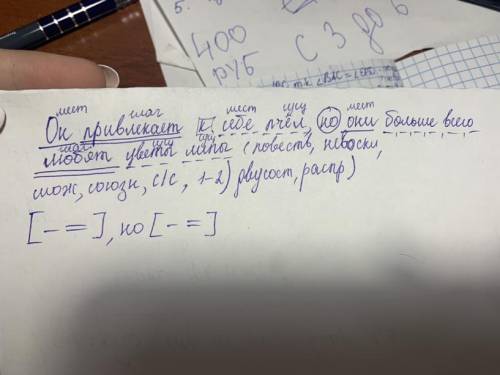 5.
400
руб
С 3 до 6
мест глаг мест сущ мест
Он привлекает к себе пчёл, но они больше всего
глаг сущ сущ
любят цветы липы (повеств, невоскл,
слож, союзн, с/с, 1-2) двусост, распр)
[- =], но [- =]